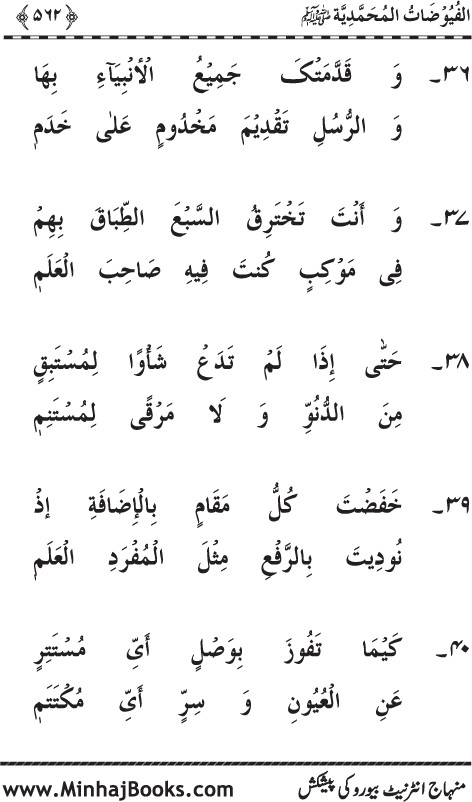 الفُيُوْضَاتُ المُحَمَّدِيَّة ﷺ ﴿۵۶۲﴾
۳۶۔ وَ قَدَّمَتْكَ جَمِيْعُ الْأَنْبِيَآءِ بِهَا
وَ الرُّسُلِ تَقْدِيْمَ مَخْدُومٍ عَلٰى خَدَمٖ
۳۷۔ وَ أَنْتَ تَخْتَرِقُ السَّبْعَ الطِّبَاقَ بِهِمْ
فِى مَوْكِبٍ كُنتَ فِيهِ صَاحِبَ الْعَلَمٖ
۳۸۔ حَتّٰى إِذَا لَمْ تَدَعْ شَأْوًا لِمُسْتَبِقٍ
مِنَ الدُّنُوِّ وَ لَا مَرْقًى لِمُسْتَنِمٖ
۳۹۔ خَفَضْتَ كُلَّ مَقَامٍ بِالْإِضَافَةِ إِذْ
نُودِيتَ بِالرَّفْعِ مِثْلَ الْمُفْرَدِ الْعَلَمٖ
۴۰۔ كَيْمَا تَفُوزَ بِوَصْلٍ أَىِّ مُسْتَتِرٍ
عَنِ الْعُيُونِ وَ سِرٍّ أَىِّ مُكْتَتَمٖ
منہاج انٹرنیٹ بیورو کی پیشکش www.MinhajBooks.com